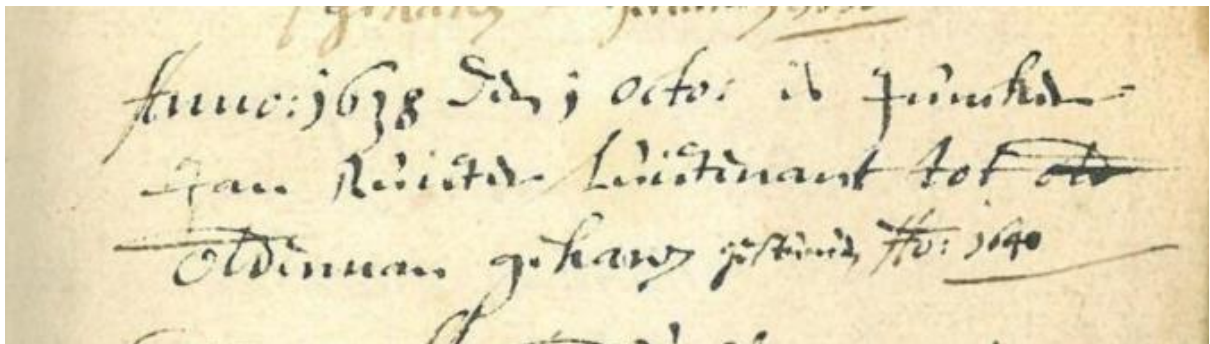 Anno: 1638 den 1 octo: is Juncker
Jan Ruiter Luitenant tot old
Oldenman gekaren gesturven Ao: 1640